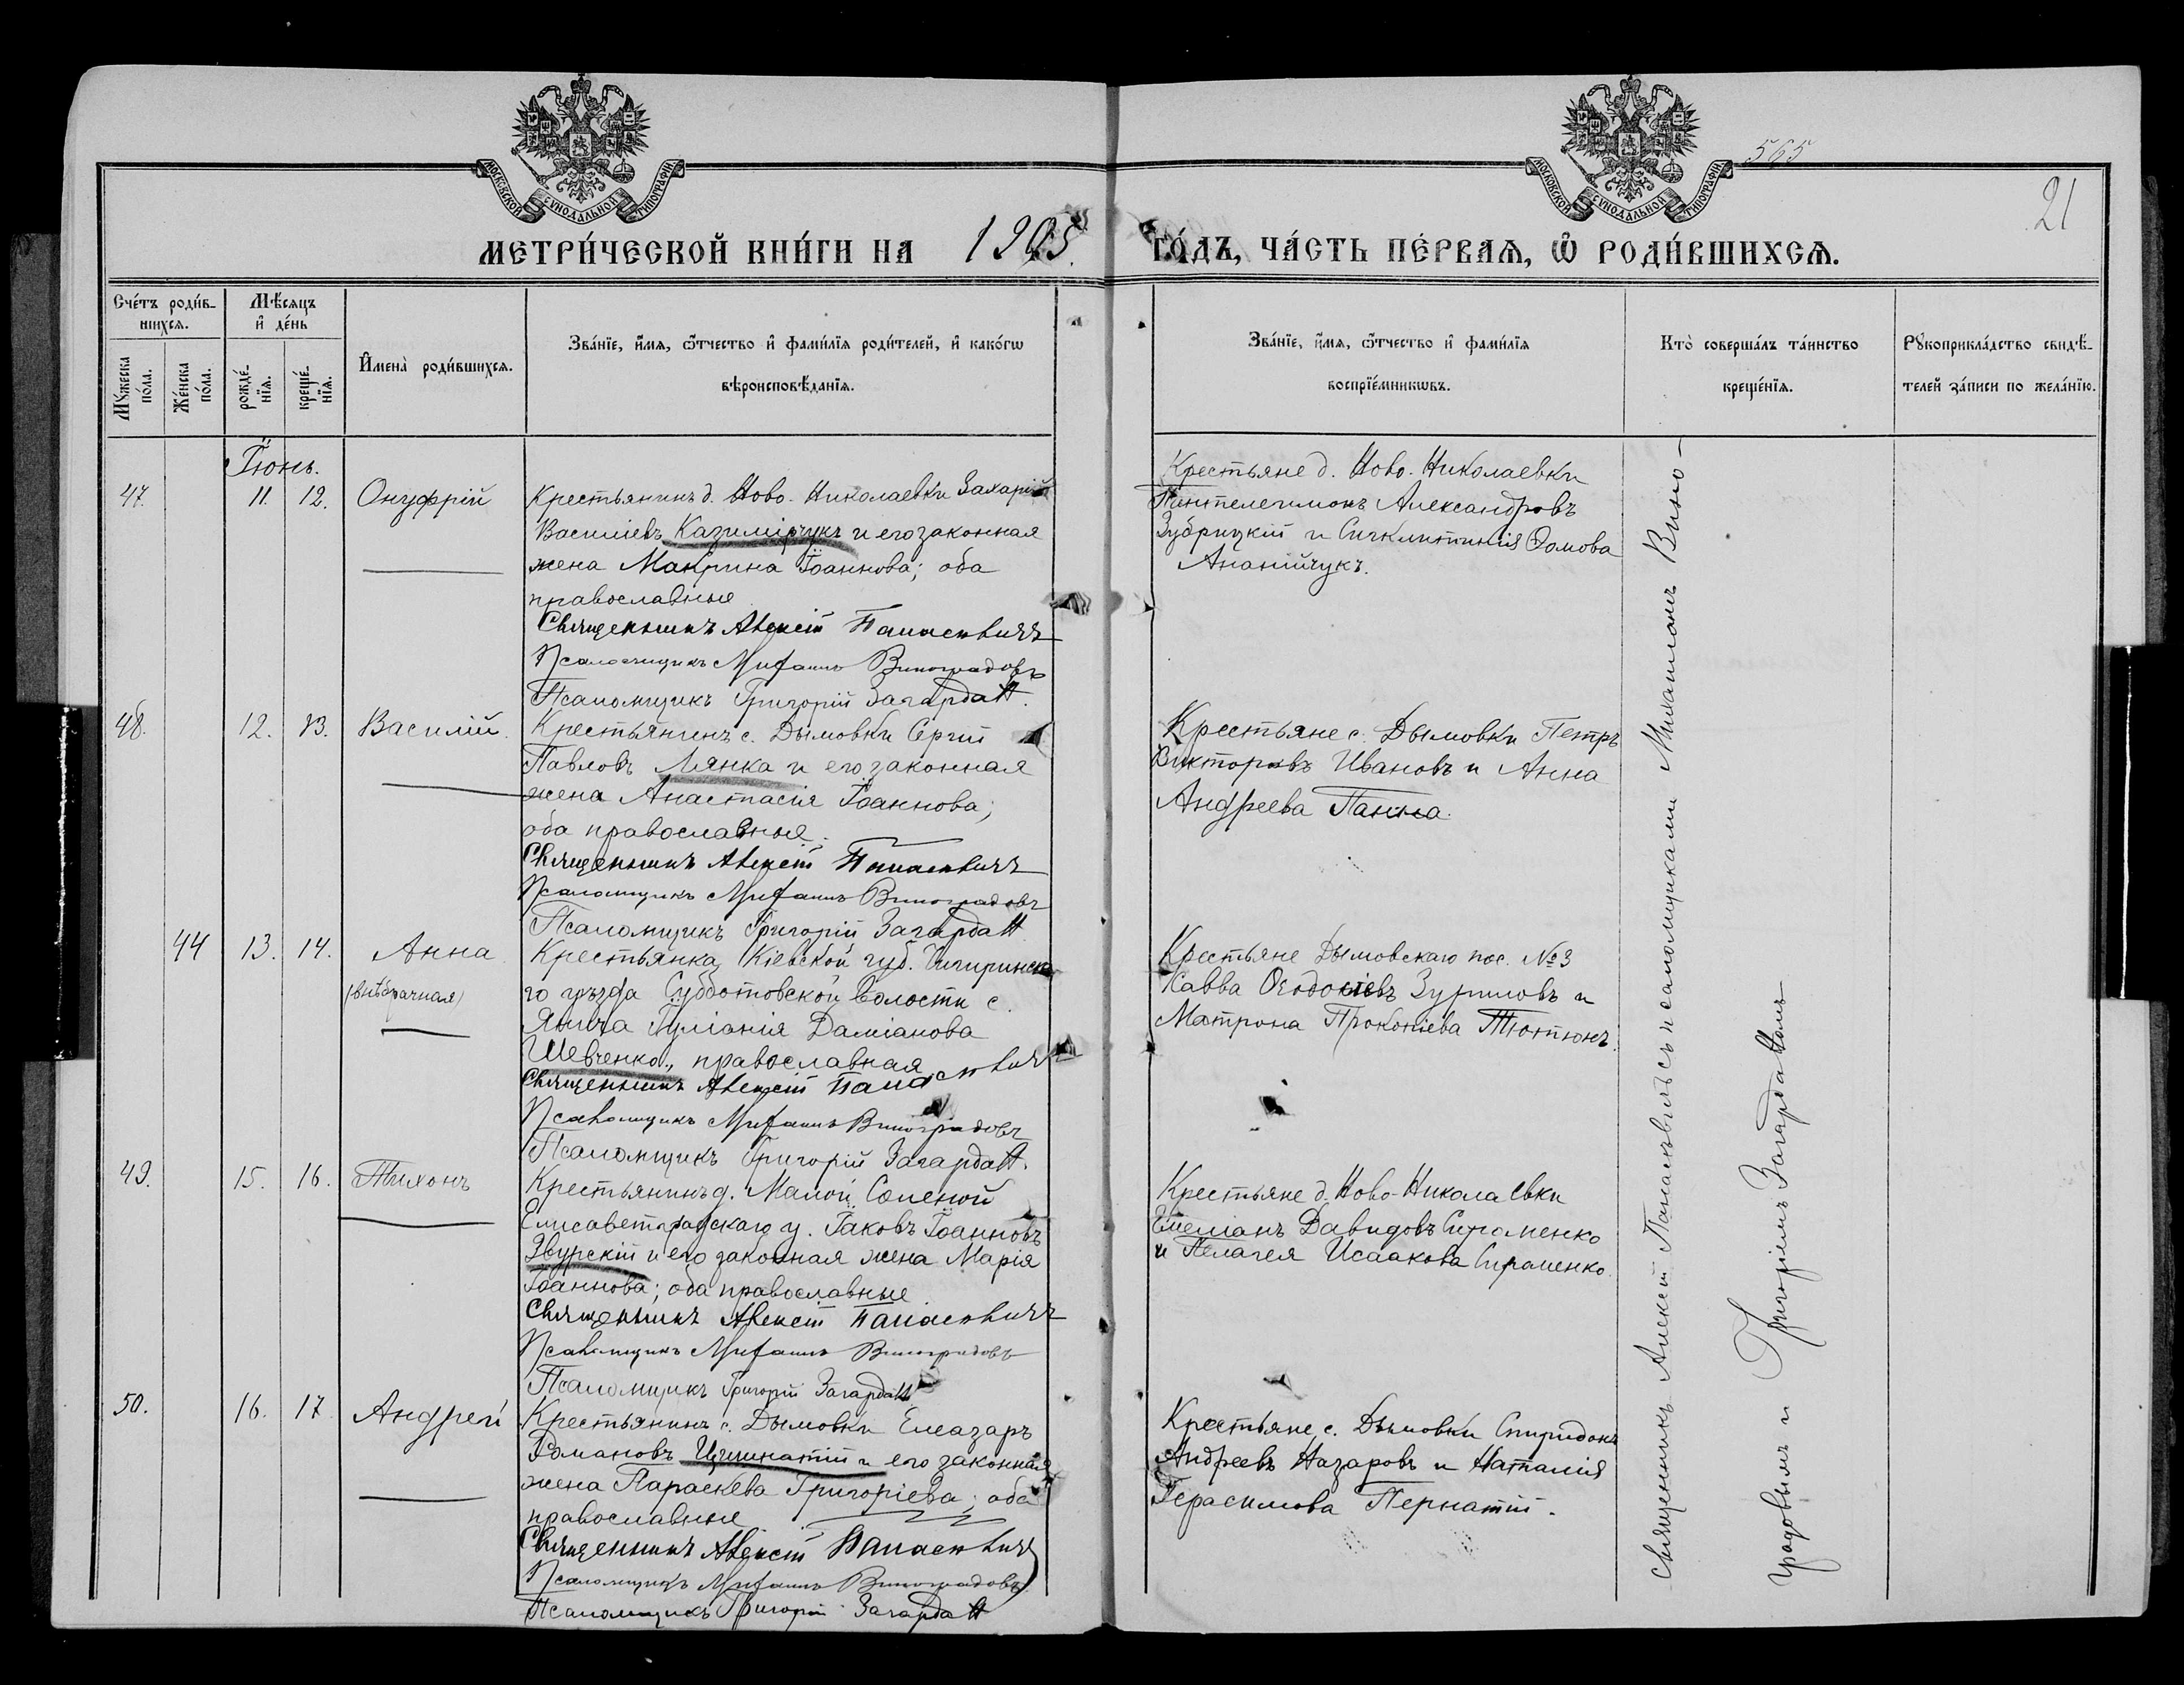 МОСКОВСКОЙ СУНОДАЛЬНОЙ ТИПОГРАФІИ
МОСКОВСКОЙ СУНОДАЛЬНОЙ ТИПОГРАФІИ
565
21
МЕТРИ́ЧЕСКОЙ КНИ́ГИ НА 1905 ГО́ДЪ, ЧА́СТЬ ПЕ́РВАѦ, Ѿ РОДИ́ВШИХСѦ.
Сче́тъ роди́в-
шихсѧ.
Мꙋ́жеска по́ла.
Же́нска по́ла.
Мѣ́сѧцъ
и҆ де́нь
рожде́-
нїѧ.
креще́-
нїѧ.
И҆мена̀ роди́вшихсѧ.
Зва́нїе, и҆́мѧ, ѻ҆́тчество и҆ фами́лїѧ роди́телей, и҆ како́гѡ
вѣроисповѣ́данїѧ.
Зва́нїе, и҆́мѧ, ѻ҆́тчество и҆ фами́лїѧ
воспрїе́мникѡвъ.
Кто̀ соверша́лъ та́инство
креще́нїѧ.
Рꙋкоприкла́дство свидѣ́-
телей за́писи по жела́нїю.
Іюнь.
47. 11. 12. Онуфрій
Крестьянинъ д. Ново-Николаевки Захарій
Василіевъ Казимірчукъ и его законная
жена Макрина Іоаннова; оба
православные
Священникъ Алексій Панасевичъ
Псаломщикъ Михаилъ Виноградовъ
Псаломщикъ Григорій Загардан.
Крестьяне д. Ново-Николаевки
Пантелеимонъ Александровъ
Зубрицкій и Сигклитикія Ѳомова
Ананійчукъ.
48. 12. 13. Василій.
Крестьянинъ с. Дымовки Сергій
Павловъ Лянка и его законная
жена Анастасія Іоаннова;
оба православные.
Священникъ Алексій Панасевичъ
Псаломщикъ Михаилъ Виноградовъ
Псаломщикъ Григорій Загардан
Крестьяне с. Дымовки Петръ
Викторовъ Ивановъ и Анна
Андреева Панна.
44 13. 14. Анна
(внѣбрачная)
Крестьянка Кіевской губ. Чигиринска-
го уѣзда Субботовской волости с.
Янича Іуліанія Даміанова
Шевченко, православная
Священникъ Алексій Панасевичъ
Псаломщикъ Михаилъ Виноградовъ
Псаломщикъ Григорій Загардан.
Крестьяне Дымовскаго пос. №3
Савва Ѳеодосіевъ Зуриловъ и
Матрона Прокопіева Тютюнъ.
49. 15. 16. Тихонъ
Крестьянинъ д. Малой Соленой
Елисаветградскаго у. Іаковъ Іоанновъ
Звурскій и его законная жена Марія
Іоаннова; оба православные
Священникъ Алексій Панасевичъ
Псаломщикъ Михаилъ Виноградовъ
Псаломщикъ Григорій Загардан
Крестьяне д. Ново-Николаевки
Емеліанъ Давидовъ Сироменко
и Пелагея Исаакова Сироменко.
50. 16. 17. Андрей
Крестьянинъ с. Дымовки Елеазаръ
Романовъ и его законная
жена Параскева Григоріева; оба
православные
Священникъ Алексій Панасевичъ
Псаломщикъ Михаилъ Виноградовъ
Псаломщикъ Григорій Загардан
Крестьяне с. Дымовки Спиридонъ
Андреевъ Назаровъ и Наталія
Герасимова Пернатій.
Священникъ Алексій Панасевичъ съ псаломщиками Михаиломъ Вино-
градовымъ и Григоріемъ Загарданомъ